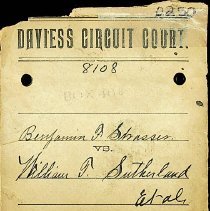 DAVIESS CIRCUIT COURT.
8108
Benjamin F. Strasser
VS.
William T. Sutherland
Et al